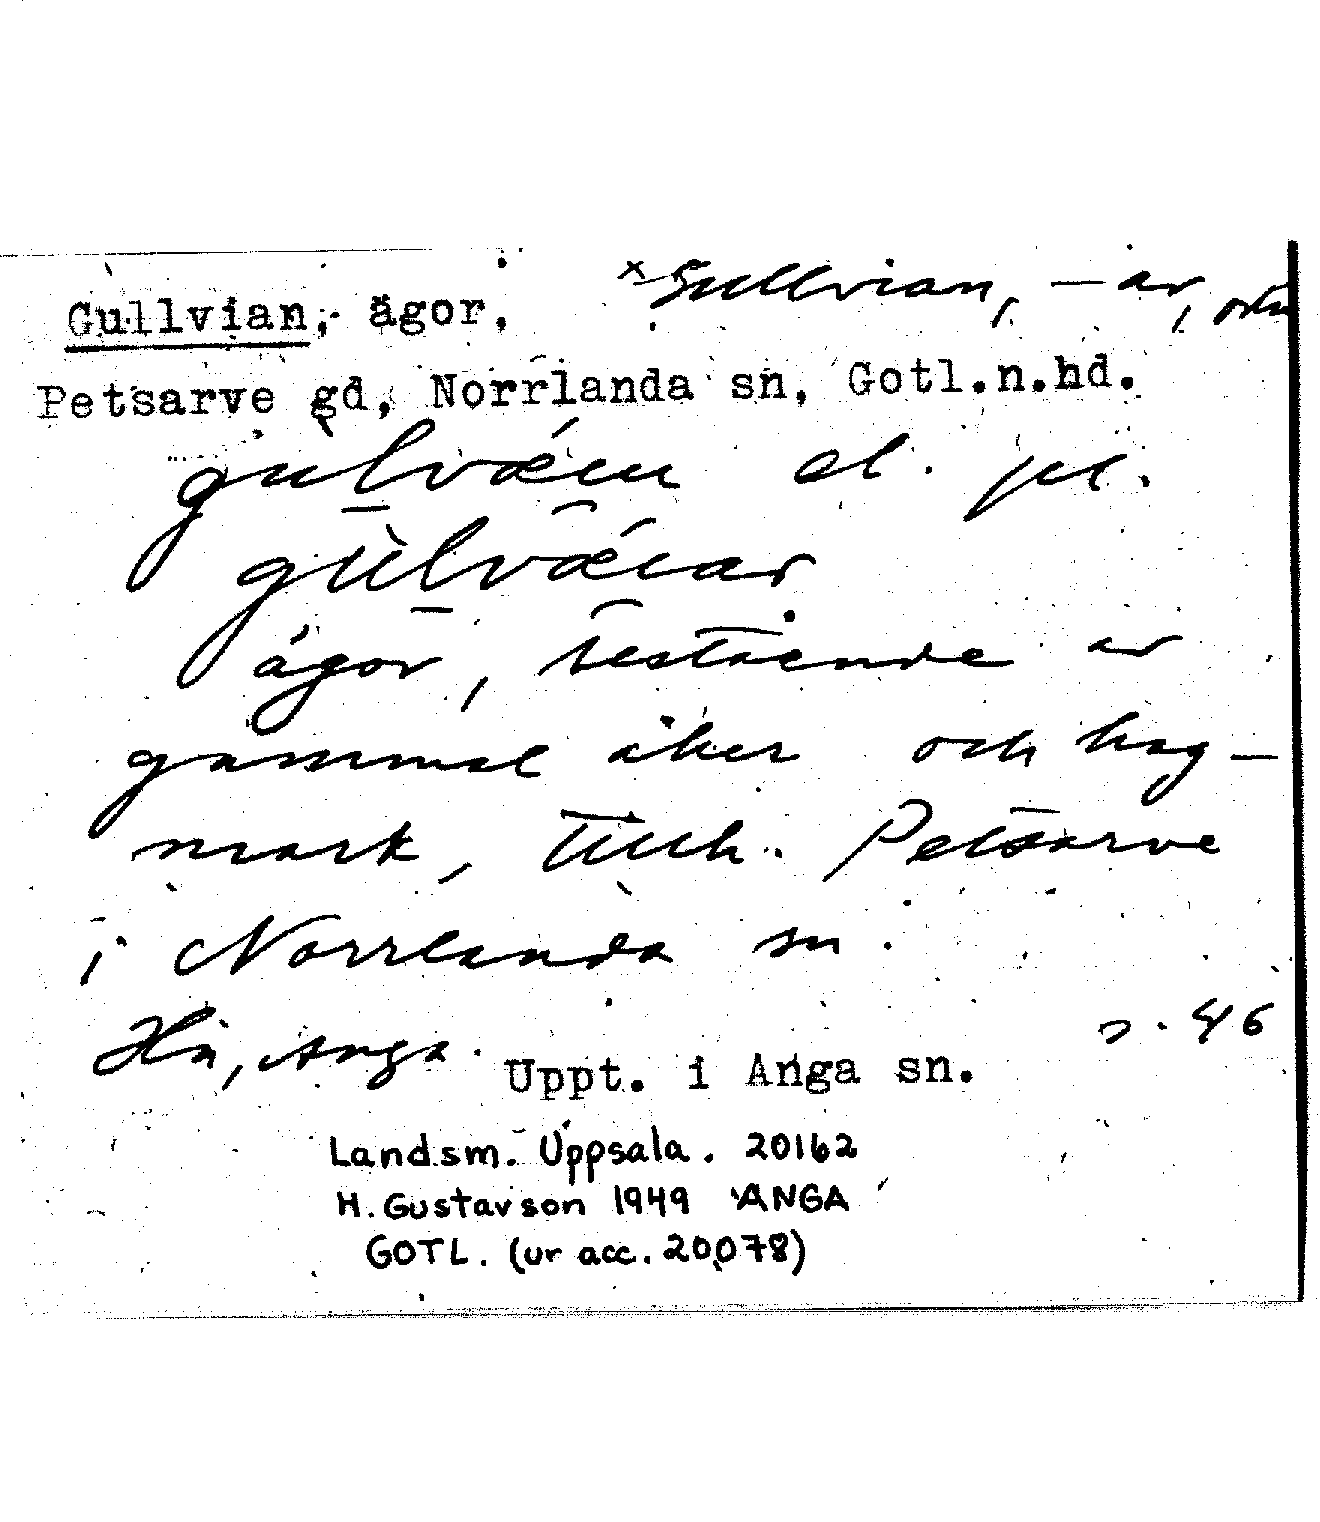 Gullvian, ägor, ˣGullvian, -ar,
Petsarve gd, Norrlanda sn, Gotl.n.hd.
gulvæin el. pl.
gulvæiar
ägor, bestående av
gammal åker och hag-
mark, tillh. Petsarve
i Norrlanda sn.
Hn, Anga. s. 46
Uppt. i Anga sn.
Landsm. Uppsala. 20162
H. Gustavson 1949 ANGA
GOTL. (ur acc. 20078)